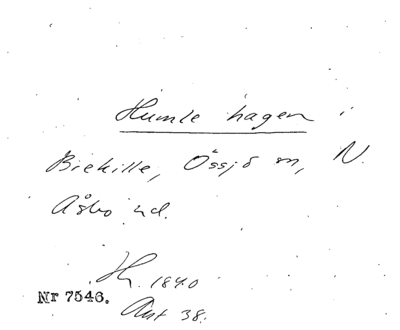 Humle hagen i
Biekille, Össjö sn, N.
Åsbo hd.
H. 1840
Nr 7546.
Ant 38.